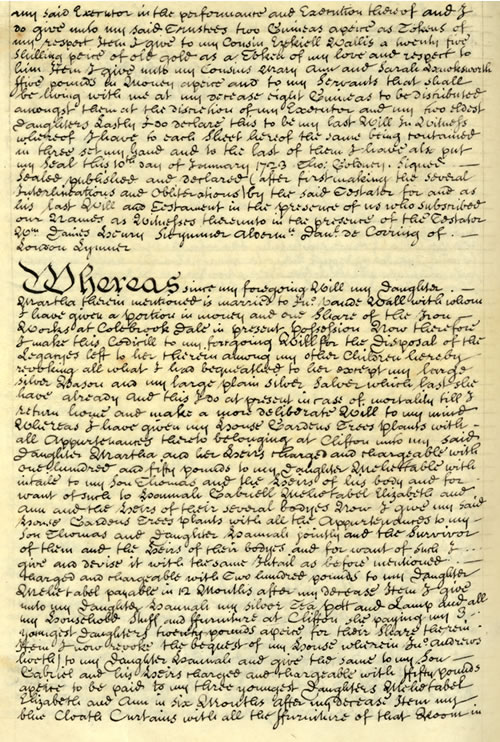 my said Executor in the performance and Execution thereof and I
do give unto my said Trustees two Guineas apeice as Tokens of
my respect Item I give to my Cousin Ezekiell Wallis a twenty five
shilling peice of old gold as a Token of my love and respect to
him Item I give unto my Cousins Mary Ann and Sarah
ffive pounds in Money apeice and to my Servants that shall
be living with me at my decease eight Guineas to be distributed
amongst them at the discretion of my Executor and my two eldest
Daughters Lastly I do declare this to be my last Will In Witness
whereof I have to each Sheet hereof the same being contained
in three set my hand and to the last of them I have also put
my Seal this 10th day of January 1723 Tho: Goldney. Signed
Sealed published and declared (after first making the several
Interlineations and Obliterations) by the said Testator for and as
his last Will and Testament in the presence of us who subscribed
our Names as Witnesses thereunto in the presence of the Testator
Wm Daines Scrivener of
London
Whereas since my foregoing Will my Daughter
Martha therein mentioned is married to Jno. Vande Wall with whom
I have given a portion in money and one Share of the Iron
Works at Colebrook Dale in present possession Now therefore
I make this Codicill to my foregoing Will for the Disposal of the
Legacyes left to her therein among my other Children hereby
revoking all what I had bequeathed to her except my large
silver Bason and my large plain silver Salver which last she
have already And this I do at present in case of mortality till I
return home and make a more deliberate Will to my mind
Whereas I have given my House Gardens Trees plants with
all Appurtenances thereto belonging at Clifton unto my said
Daughter Martha and her Heirs charged and chargeable with
one hundred and fifty pounds to my Daughter Mehettable with
intale to my Son Thomas and the Heirs of his body and for
want of such to Hannah Gabriell Mehetabel Elizabeth and
Ann and the Heirs of their several bodyes Now I give my said
House Gardens Trees plants with all the Appurtenances to my
Son Thomas and Daughter Hannah jointly and the Survivor
of them and the Heirs of their bodyes and for want of such I
give and devise it with the same Intail as before mentioned
charged and chargeable with Two hundred pounds to my Daughter
Mehetabel payable in 12 Months after my decease Item I give
unto my Daughter Hannah my silver Tea Pott and Lamp and all
my Household Stuff and ffurniture at Clifton she paying my 3
youngest Daughters twenty pounds apeice for their Share therein
Item I now revoke the bequest of my House wherein Jno. Andrews
liveth to my Daughter Hannah and give the same to my Son
Gabriel and his Heirs charged and chargeable with ffifty pounds
apeice to be paid to my three youngest Daughters Mehetabel
Elizabeth and Ann in six Months after my decease Item my
blue Cloath Curtains with all the ffurniture of that Room in